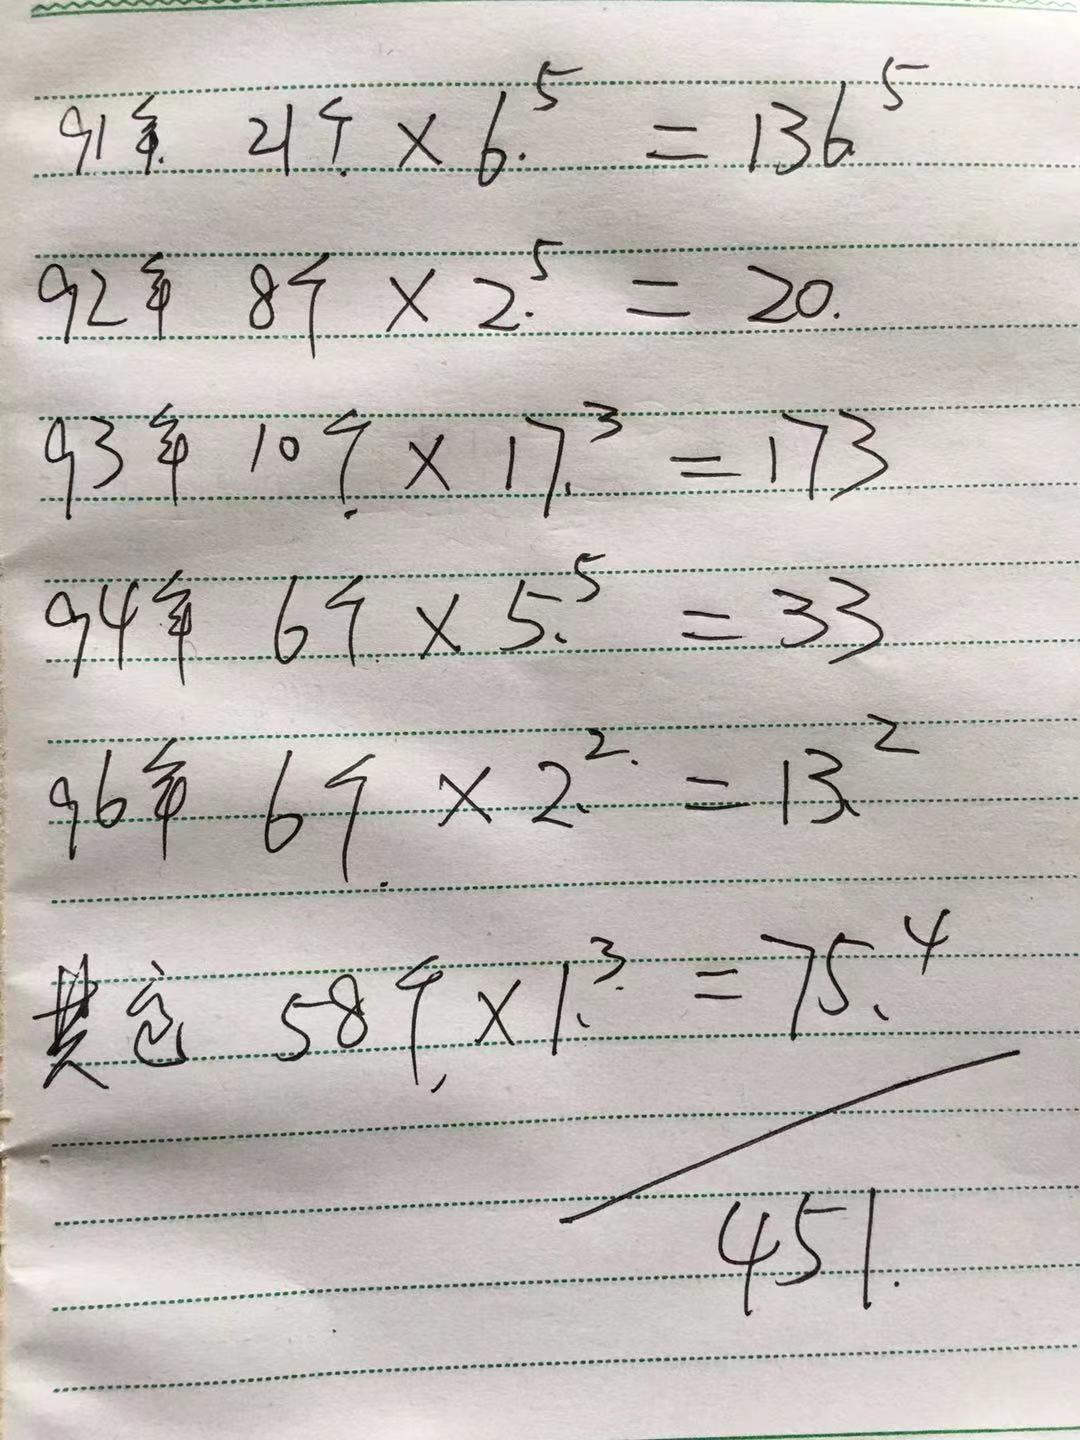 91年 21个 × 6.5 = 136.5
92年 8个 × 2.5 = 20.
93年 10个 × 17.3 = 173
94年 6个 × 5.5 = 33
96年 6个 × 2.2 = 13.2
58个 × 1.3 = 75.4
451.